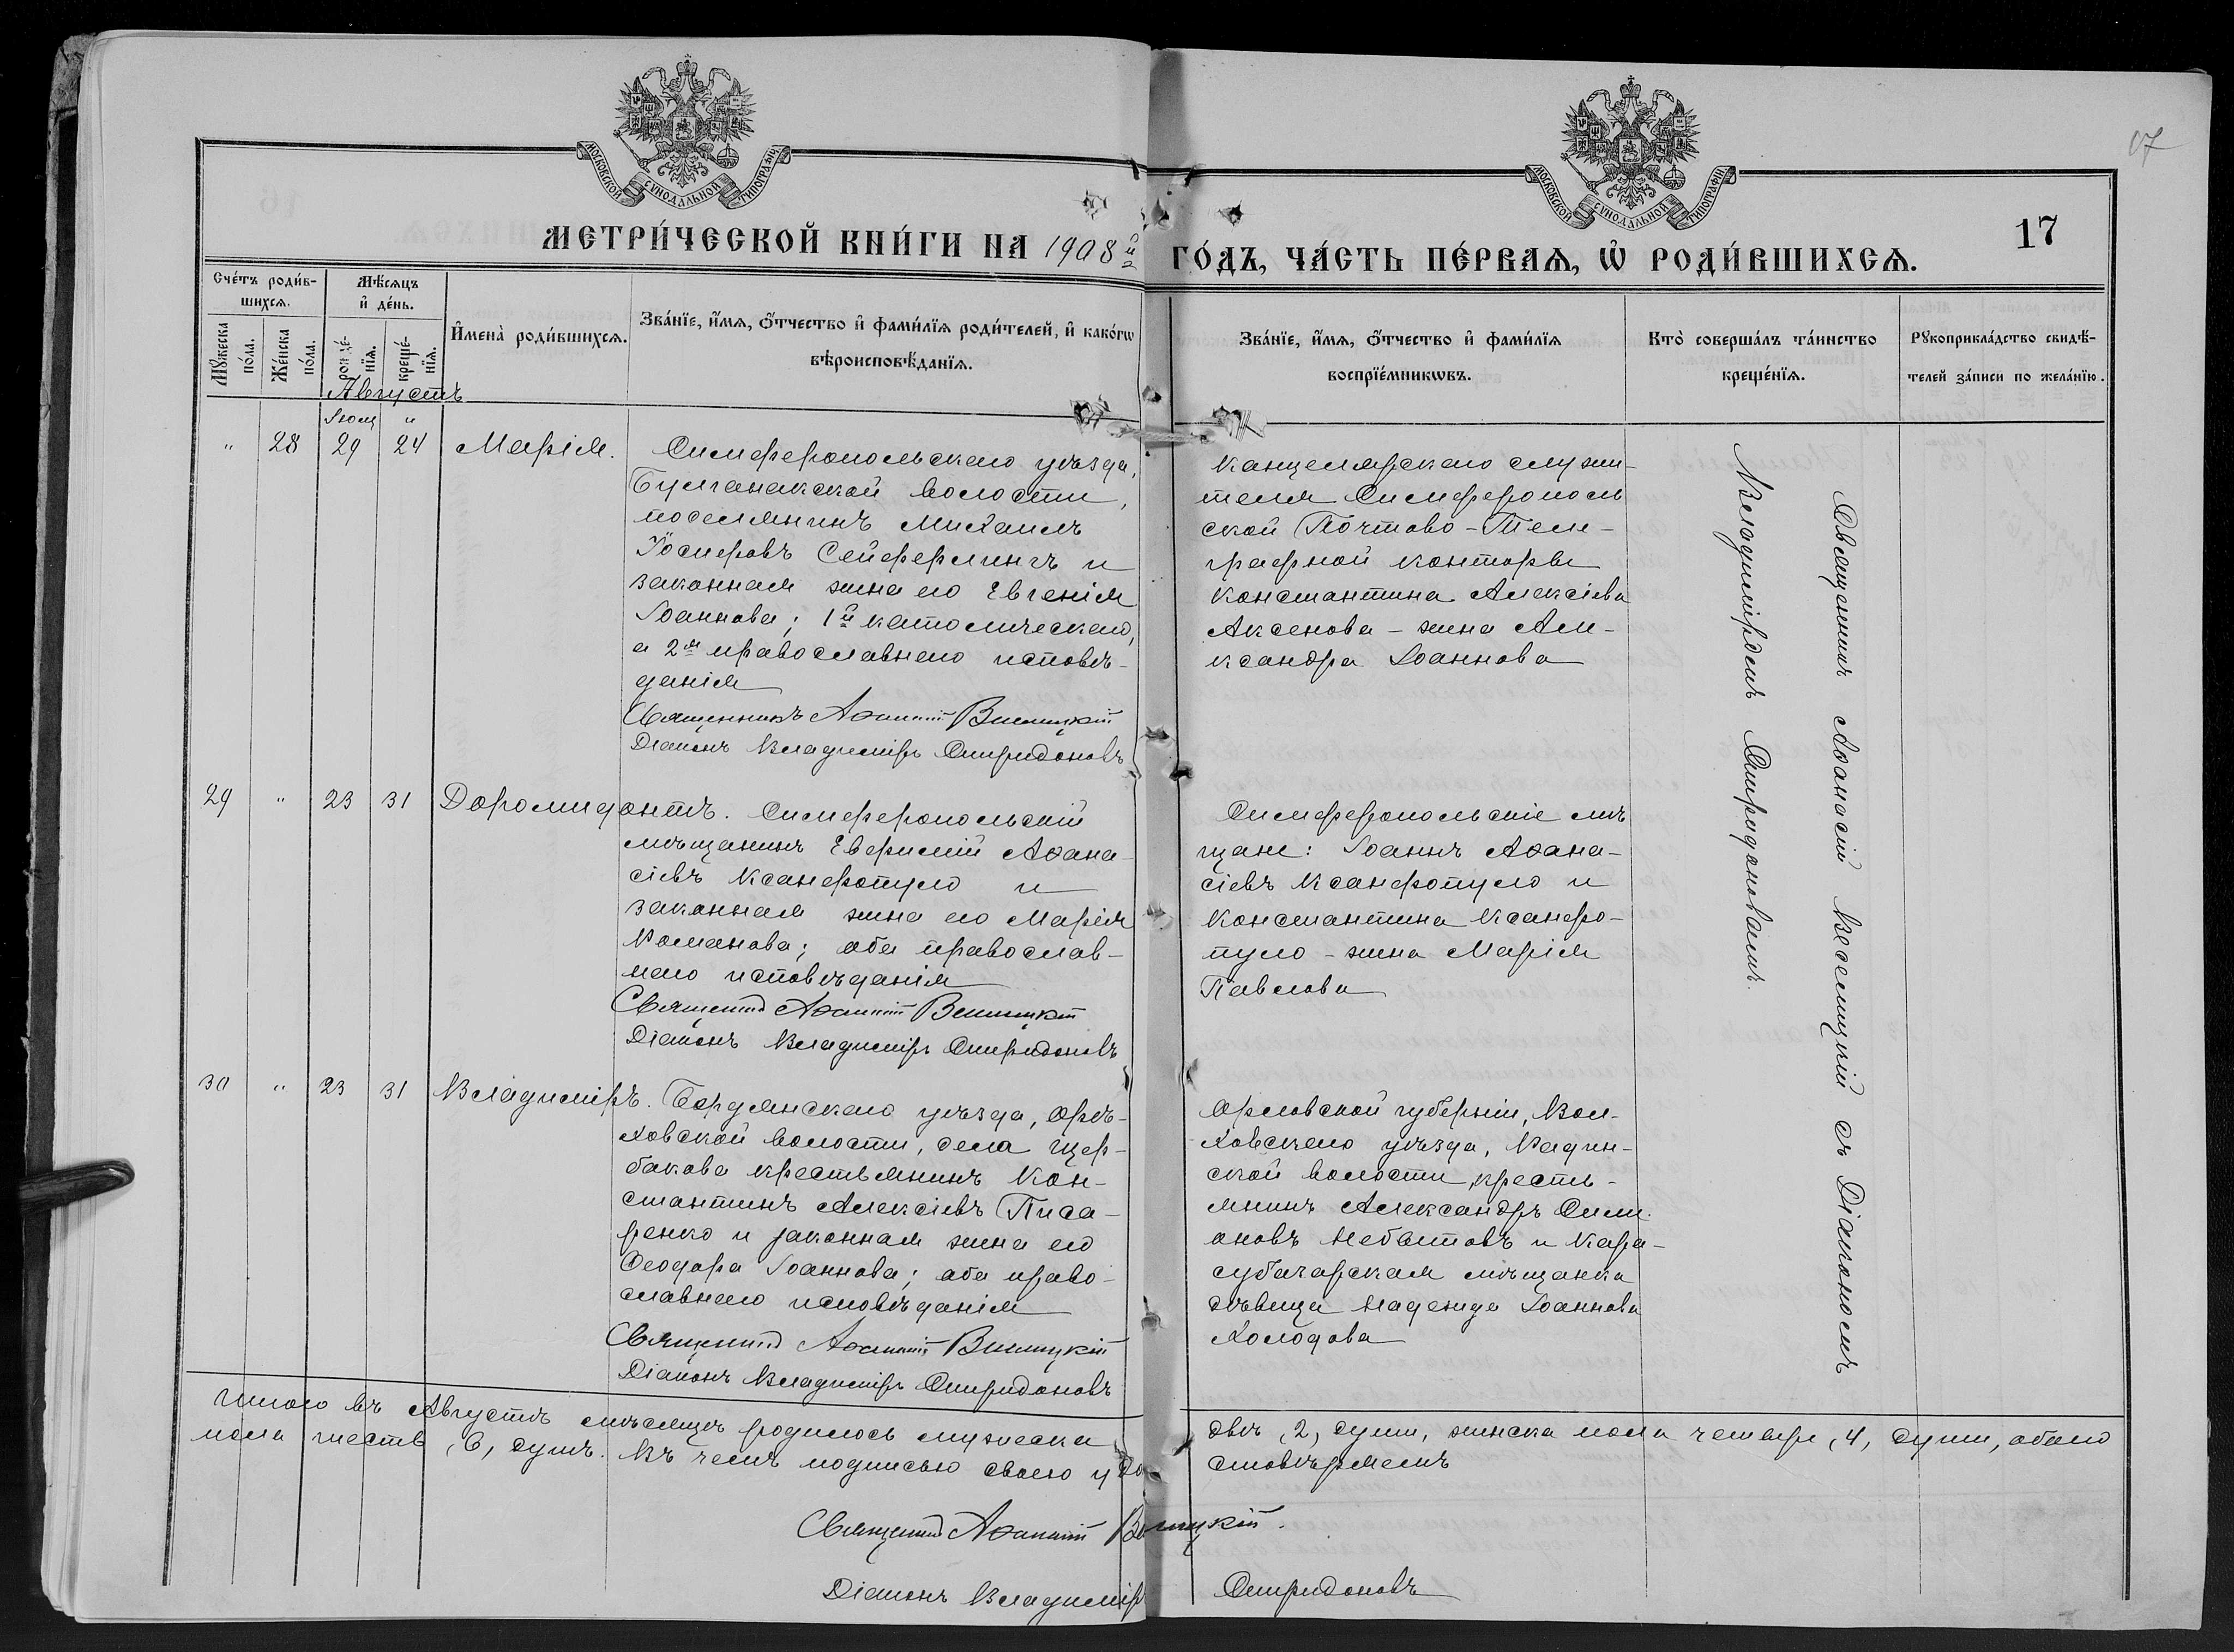 МОСКОВСКОЙ СУНОДАЛЬНОЙ ТИПОГРАФІИ
МОСКОВСКОЙ СУНОДАЛЬНОЙ ТИПОГРАФІИ
17
17
МЕТРИ́ЧЕСКОЙ КНИ́ГИ НА 1908й ГО́ДЪ, ЧА́СТЬ ПЕ́РВАѦ, Ѡ҆ РОДИ́ВШИХСѦ.
Сче́тъ роди́в-
шихсѧ.
Мꙋ́жеска
по́ла.
Же́нска
по́ла.
Мѣ́сѧцъ
и҆ де́нь.
рожде́-
нїѧ.
креще́-
нїѧ.
И҆мена̀ роди́вшихсѧ.
Зва́нїе, и҆́мѧ, ѻ҆́тчество и҆ фами́лїѧ роди́телей, и҆ како́гѡ
вѣроисповѣ́данїѧ.
Зва́нїе, и҆́мѧ, ѻ҆́тчество и҆ фами́лїѧ
воспрїе́мникѡвъ.
Кто̀ соверша́лъ та́инство
креще́нїѧ.
Рꙋкоприкла́дство свидѣ́-
телей за́писи по жела́нїю.
Августъ
Іюля "
" 28 29 24 Марія.
Симферопольскаго уѣзда,
Булганакской волости,
поселянинъ Михаилъ
Іосифовъ Сейферлингъ и
законная жена его Евгенія
Іоаннова; 1й католическаго,
а 2я православнаго исповѣ-
данія
Священникъ Аѳанасій Веселицкій
Діаконъ Владиміръ Спиридоновъ
Канцелярскаго служи-
теля Симферополь
ской Почтово-Теле-
графной конторы
Константина Алексіева
Аксенова - жена Але-
ксандра Іоаннова
Священникъ Аѳанасій Веселицкій съ Діакономъ
Владиміромъ Спиридоновымъ.
29 " 23 31 Доримедонтъ.
Симферопольскій
мѣщанинъ Евфимій Аѳана-
сіевъ Ксанфопуло и
законная жена его Марія
Романова; оба православ-
наго исповѣданія
Священникъ Аѳанасій Веселицкій
Діаконъ Владиміръ Спиридоновъ
Симферопольскіе мѣ
щане: Іоаннъ Аѳана-
сіевъ Ксанфопуло и
Константина Ксанфо-
пуло - жена Марія
Павлова
30 " 23 31 Владиміръ.
Бердянскаго уѣзда, Орѣ-
ховской волости, села Щер-
бакова крестьянинъ Кон-
стантинъ Алексіевъ Писа-
ренко и законная жена его
Ѳеодора Іоаннова; оба право-
славнаго исповѣданія
Священникъ Аѳанасій Веселицкій
Діаконъ Владиміръ Спиридоновъ
Орловской губерніи, Бол-
ховскаго уѣзда,
ской волости, кресть-
янинъ Александръ Сим
оновъ Небытовъ и Кара-
субазарская мѣщанка
дѣвица Надежда Іоаннова
Холодова
Итого въ Августѣ мѣсяцѣ родилось мужеска двѣ, 2, души, женска пола четыре, 4, души, обоего
пола шесть, 6, душъ. Въ чемъ подписью своею удостовѣряемъ
Священникъ Аѳанасій Веселицкій.
Діаконъ Владиміръ Спиридоновъ